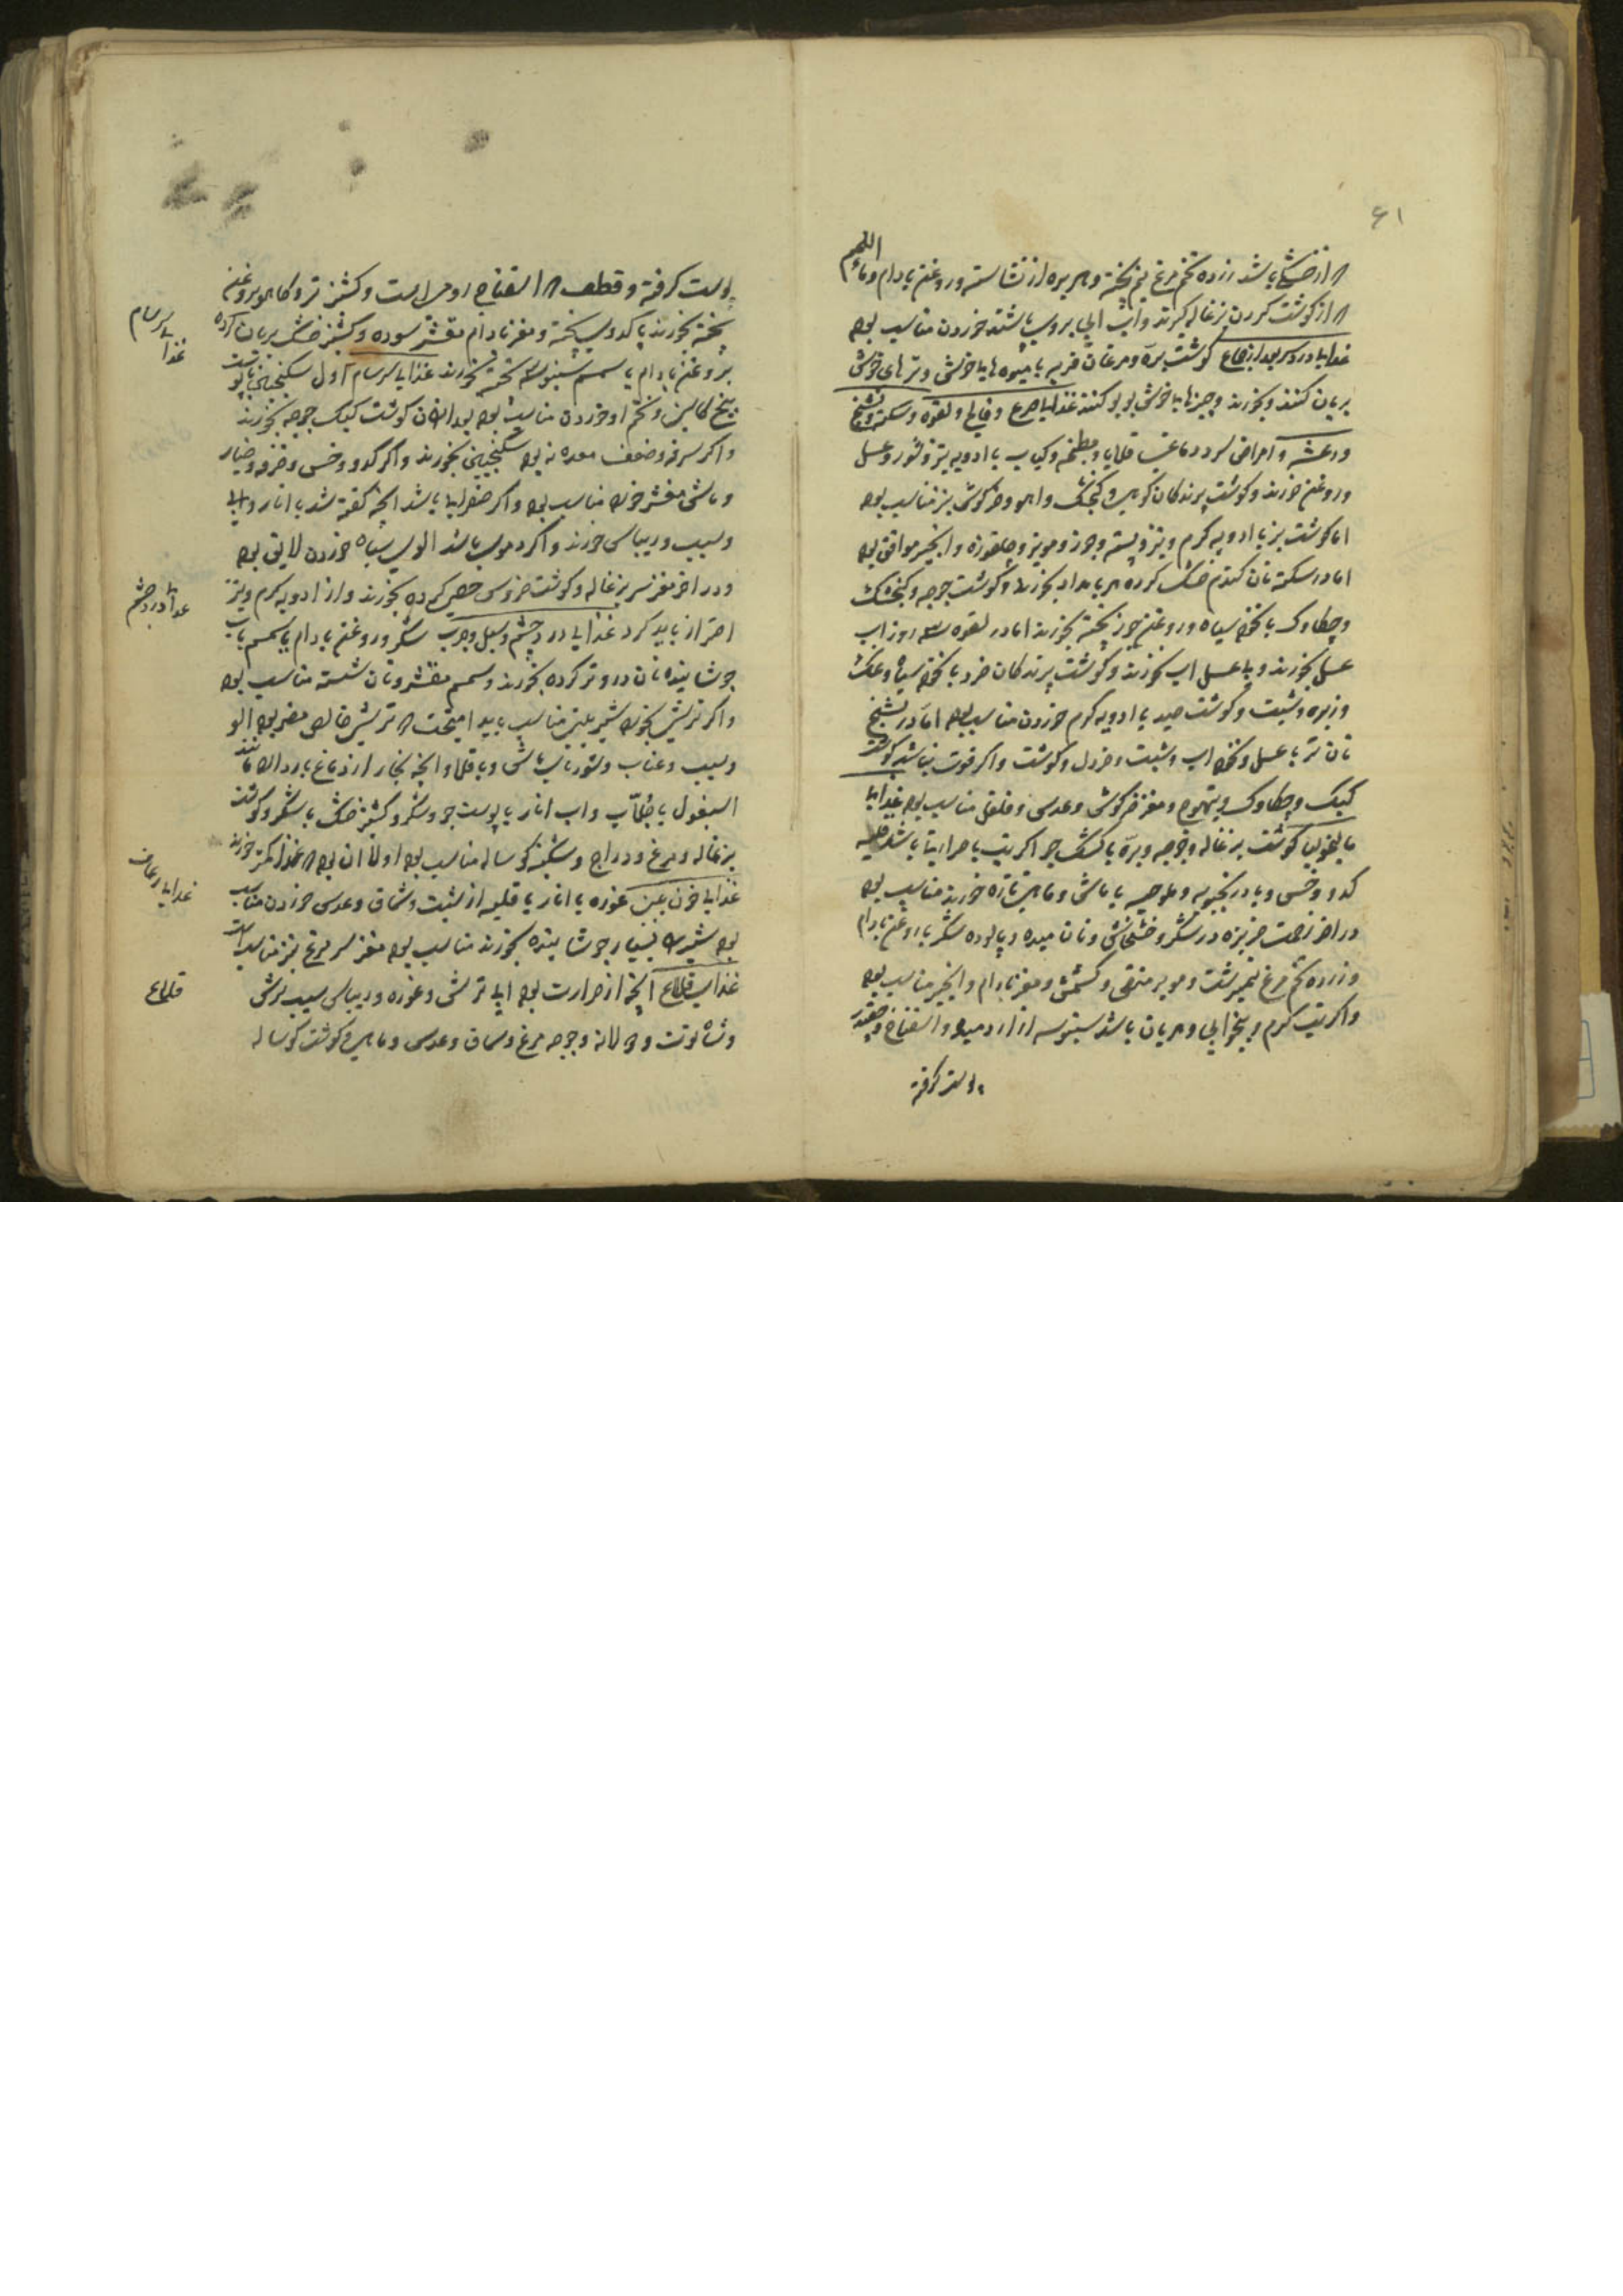 ۶۱
از خشکی باشد زرده تخم مرغ نیم پخته و هریره از نشاسته و روغن بادام و ماء اللحم
از گوشت گردن بزغاله گیرند و آب ابی بروی باشند خوردن مناسب بود
غذاها گوشت بره و مرغان فربه با میوه های خوش و ترهای خوش
بریان کنند و بخورند و چیزهای خوش بوی بوی کنند غذاهای صرع و فالج و لقوه و سکته و تشنج
و رعشه و امراض سرد دماغی قلایا و مطنجه و کباب با ادویه تیز و شور و عسل
و روغن خورند و گوشت پرندگان کوهی و گنجشک و آهو و خرگوش نیز مناسب بود
اما گوشت بز با ادویه گرم و تیز و پسته و جوز و مویز و چلغوزه و انجیر موافق بود
اما در سکته نان گندم خشک کرده هر بامداد بخورند و گوشت جوجه و گنجشک
و چکاوک با نخود سیاه و روغن جوز پخته بخورند اما در لقوه سه روز آب
عسل بخورند و با عسل آب بخورند و گوشت پرندگان خرد با نخود سیاه و
و زیره و شبت و گوشت صید با ادویه گرم خوردن مناسب بود اما در تشنج
نان تر با عسل و نخود آب و شبت و خردل و گوشت و اگر قوت نباشد گوشت
کبک و چکاوک و تیهوج و مغز خرگوش و عدس و فلفل مناسب بود غذاهای
مالیخولیا گوشت بزغاله و جوجه و بره با کشک جو اگر تب یا حرارتی باشد قلیه
کدو و خس و بادرنجبویه و ملوخیه با ماش و ماهی تازه خورند مناسب بود
در آخر زحمت خربزه در شکر و خشخاش و نان میده و پالوده شکر با روغن بادام
و زرده تخم مرغ نیمبرشت و مویز منقی و کشمش و مغز بادام و انجیر مناسب بود
و اگر تب گرم و بیخوابی و هریان باشد سبوسه از آرد میده و اسفناخ و چغندر
پوست گرفته
پوست گرفته و قطف اسفناج رومی است و کشنیز تر و کاهو بروغن
پخته بخورند یا کدوی پخته و مغز بادام مقشر سوده و کشنیز خشک بریان کرده
بروغن بادام یا سمسم سبوسه پخته بخورند غذاهای سرسام اول سکنجبین
بیخ کاسنی و تخم او خوردن مناسب بود بعد از آن گوشت کبک جوجه بخورند
و اگر سرفه و ضعف معده نه بود سکنجبین بخورند و اگر کدو و خس و خرفه و خیار
و ماش مقشر خورند مناسب بود و اگر صفرایی باشد آنچه گفته شد با انار و ابی
و سیب و ریباس خورند و اگر دموی باشد الوی سیاه خوردن لایق بود
و در آخر مغز سر بزغاله و گوشت خروس خصی کرده بخورند و از ادویه گرم و تیز
احتراز باید کرد غذای درد چشم و سبل و جرب شکر و روغن بادام یا سمسم با آب
جوشانیده نان در و تر کرده بخورند و سمسم مقشر و نان شسته مناسب بود
و اگر ترشی بخورد شیرینی مناسب باید امیخت ترشی خالص مضر بود الو
و سیب و عناب و شوربای ماش و باقلا و آنچه بخار از دماغ باز دارد مانند
اسبغول با جلاب و آب انار با پوست جو و شکر و کشنیز خشک با شکر و گوشت
بزغاله و مرغ و دراج و شکنبه گوساله مناسب بود اولا آن بود غذا کمتر خورند
غذای خون بینی غوره با انار یا قلیه از شبت و سماق و عدس خوردن مناسب
بود شیر بسیار جوشانیده بخورند مناسب بود مغز سر مرغ نیز مناسب است
غذای قلاع آنچه از حرارت بود ابی ترش و غوره و ریباس و سیب ترش
و شاه توت و جوجه مرغ و سماق و عدس و ماهی و گوشت گوساله
غذای سرسام
غذای درد چشم
غذای رعاف
قلاع